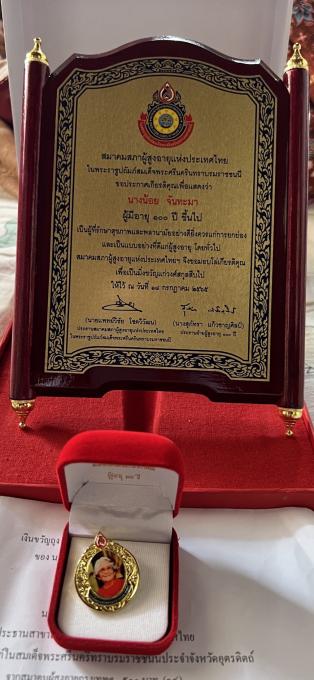 สมาคมสภาผู้สูงอายุแห่งประเทศไทย
ในพระราชูปถัมภ์สมเด็จพระศรีนครินทราบรมราชชนนี
ขอประกาศเกียรติคุณเพื่อแสดงว่า
นางน้อย จันทะมา
ผู้มีอายุ ๑๐๐ ปี ขึ้นไป
เป็นผู้ที่รักษาสุขภาพและพลานามัยอย่างดียิ่งควรแก่การยกย่อง
และเป็นแบบอย่างที่ดีแก่ผู้สูงอายุ โดยทั่วไป
สมาคมสภาผู้สูงอายุแห่งประเทศไทยฯ จึงขอมอบโล่เกียรติคุณ
เพื่อเป็นมิ่งขวัญแก่วงศ์สกุลสืบไป
ให้ไว้ ณ วันที่ ๑๘ กรกฎาคม ๒๕๖๕
(นายแพทย์วิชัย โชควิวัฒน)
ประธานสมาคมสภาผู้สูงอายุแห่งประเทศไทย
ในพระราชูปถัมภ์สมเด็จพระศรีนครินทราบรมราชชนนี
ผู้สูงอายุ ๑๐๐ ปี
เงินขวัญถุง
ของ
ประธานสาขา
ในสมเด็จพระศรีนครินทราบรมราชชนนีประจำจังหวัดอุตรดิตถ์